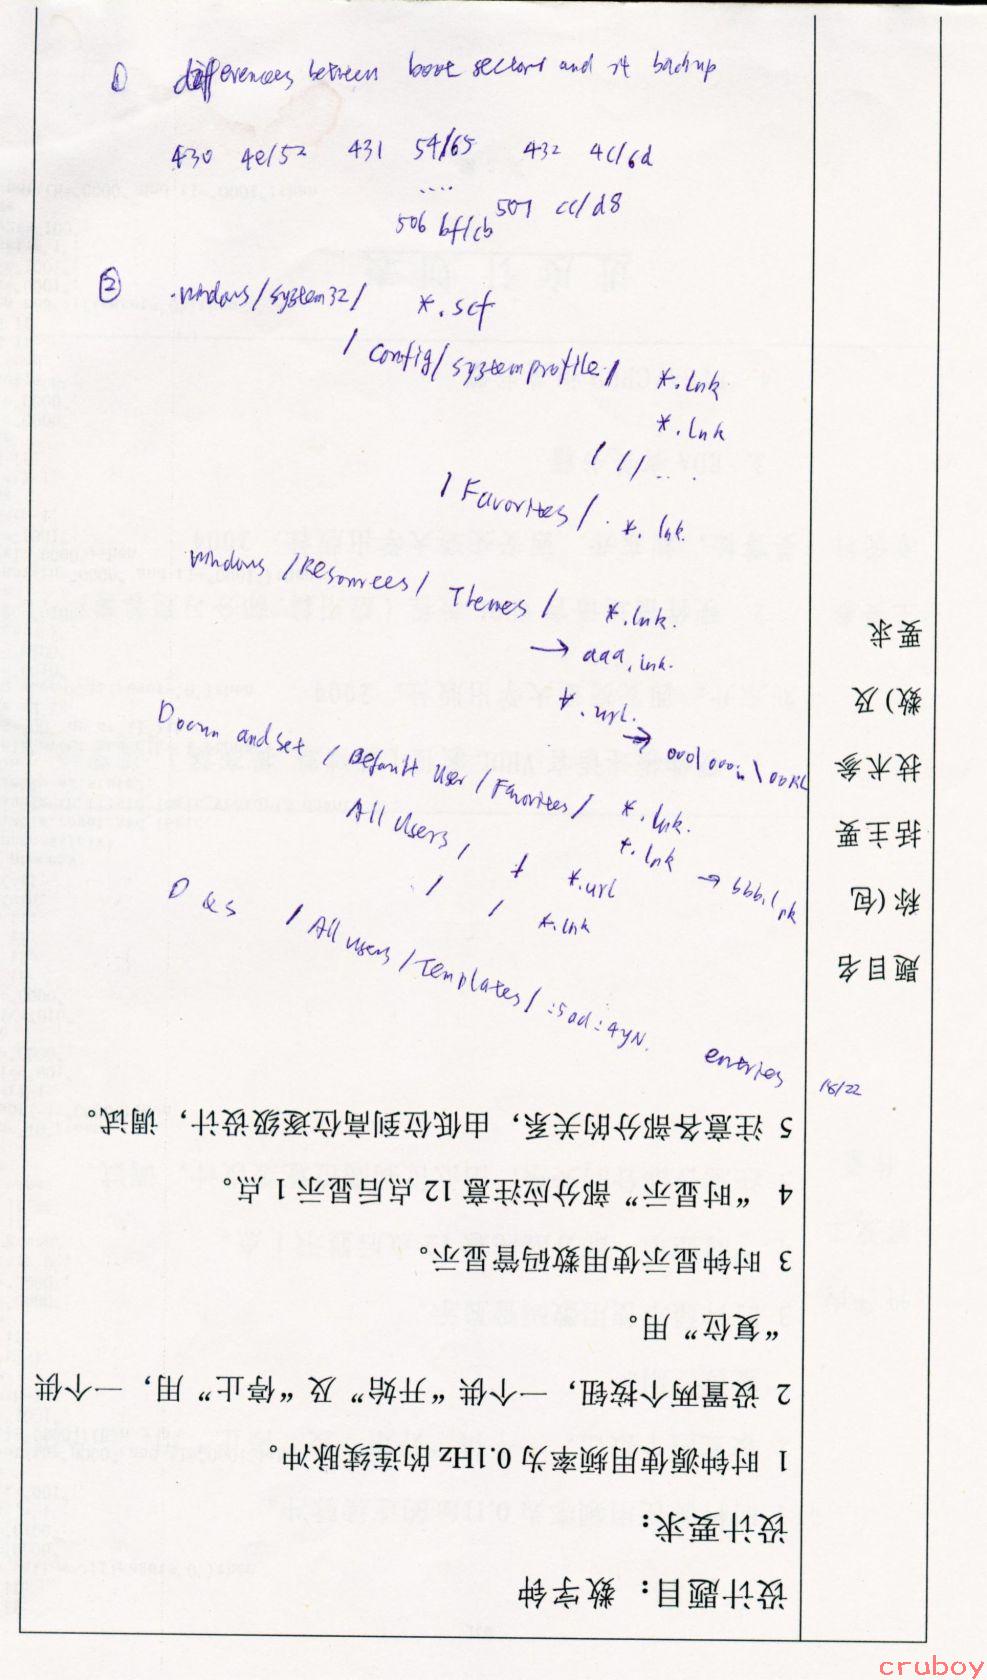 ① differences between boot sectors and it backup
430 4e/52 431 54/65 432 4c/6d
....
506 bf/cb 507 cc/d8
② windows/system32/ *.scf
/config/systemprofile/ *.lnk
*.lnk
/ // ...
/Favorites/ *.lnk
windows/Resources/Themes/ *.lnk.
→ aaa.lnk.
*.url.
→
Docum and set / Default User / Favorites / *.lnk.
All Users / *.lnk → bbb.lnk
*.url
/ / *.lnk
Docs / All users / Templates /
entries 18/22
题目名
称(包
括主要
技术参
数)及
要求
设计题目: 数字钟
设计要求:
1 时钟源使用频率为 0.1Hz 的连续脉冲。
2 设置两个按钮, 一个供“开始”及“停止”用, 一个供
“复位”用。
3 时钟显示使用数码管显示。
4 “时显示”部分应注意 12 点后显示 1 点。
5 注意各部分的关系, 由低位到高位逐级设计, 调试。
cruboy